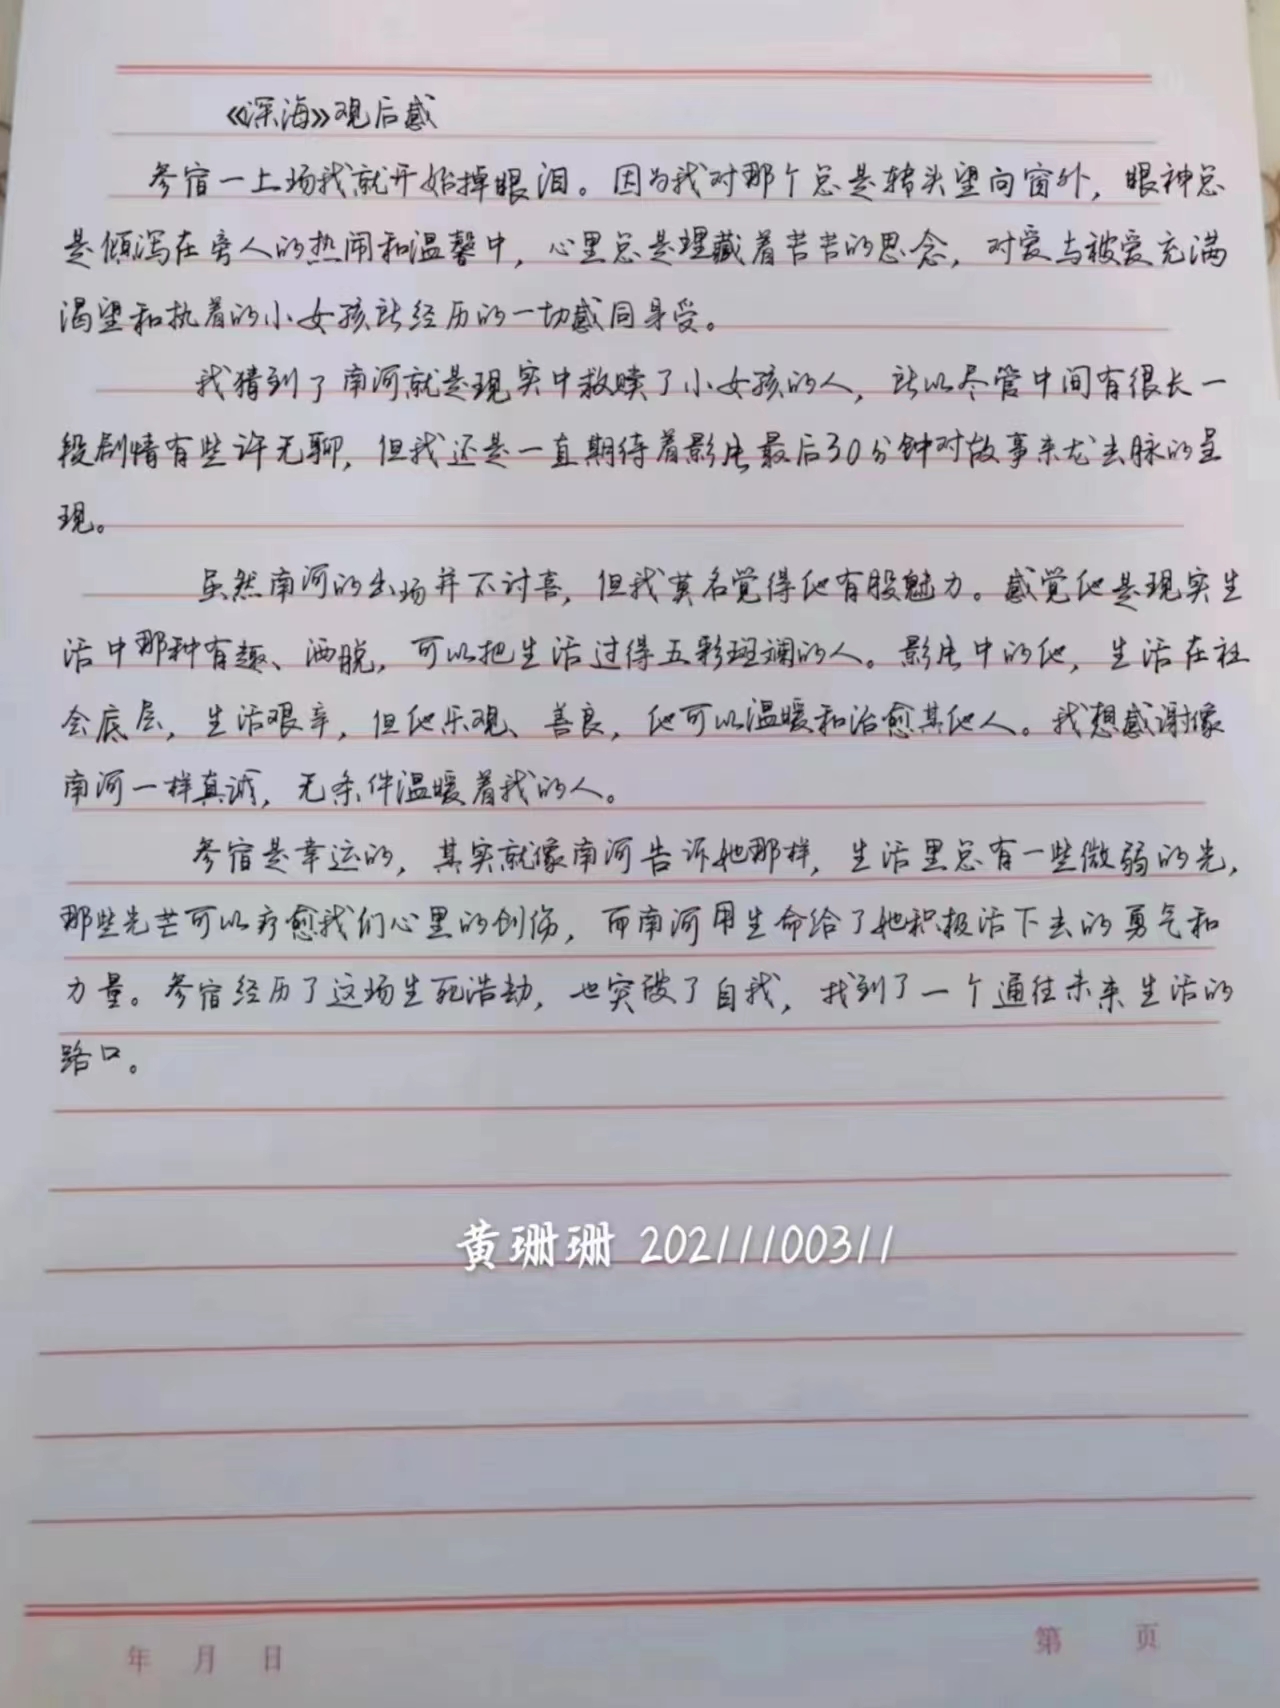 《深海》观后感
参宿一上场我就开始掉眼泪。因为我对那个总是转头望向窗外，眼神总
是倾泻在旁人的热闹和温馨中，心里总是埋藏着苦苦的思念，对爱与被爱充满
渴望和执着的小女孩所经历的一切感同身受。
我猜到了南河就是现实中救赎了小女孩的人，所以尽管中间有很长一
段剧情有些许无聊，但我还是一直期待着影片最后30分钟对故事来龙去脉的呈
现。
虽然南河的出场并不讨喜，但我莫名觉得他有股魅力。感觉他是现实生
活中那种有趣、洒脱，可以把生活过得五彩斑斓的人。影片中的他，生活在社
会底层，生活艰辛，但他乐观、善良，他可以温暖和治愈其他人。我想感谢像
南河一样真诚，无条件温暖着我的人。
参宿是幸运的，其实就像南河告诉她那样，生活里总有一些微弱的光，
那些光芒可以疗愈我们心里的创伤，而南河用生命给了她积极活下去的勇气和
力量。参宿经历了这场生死浩劫，也突破了自我，找到了一个通往未来生活的
路口。
黄珊珊 20211100311
年 月 日
第 页